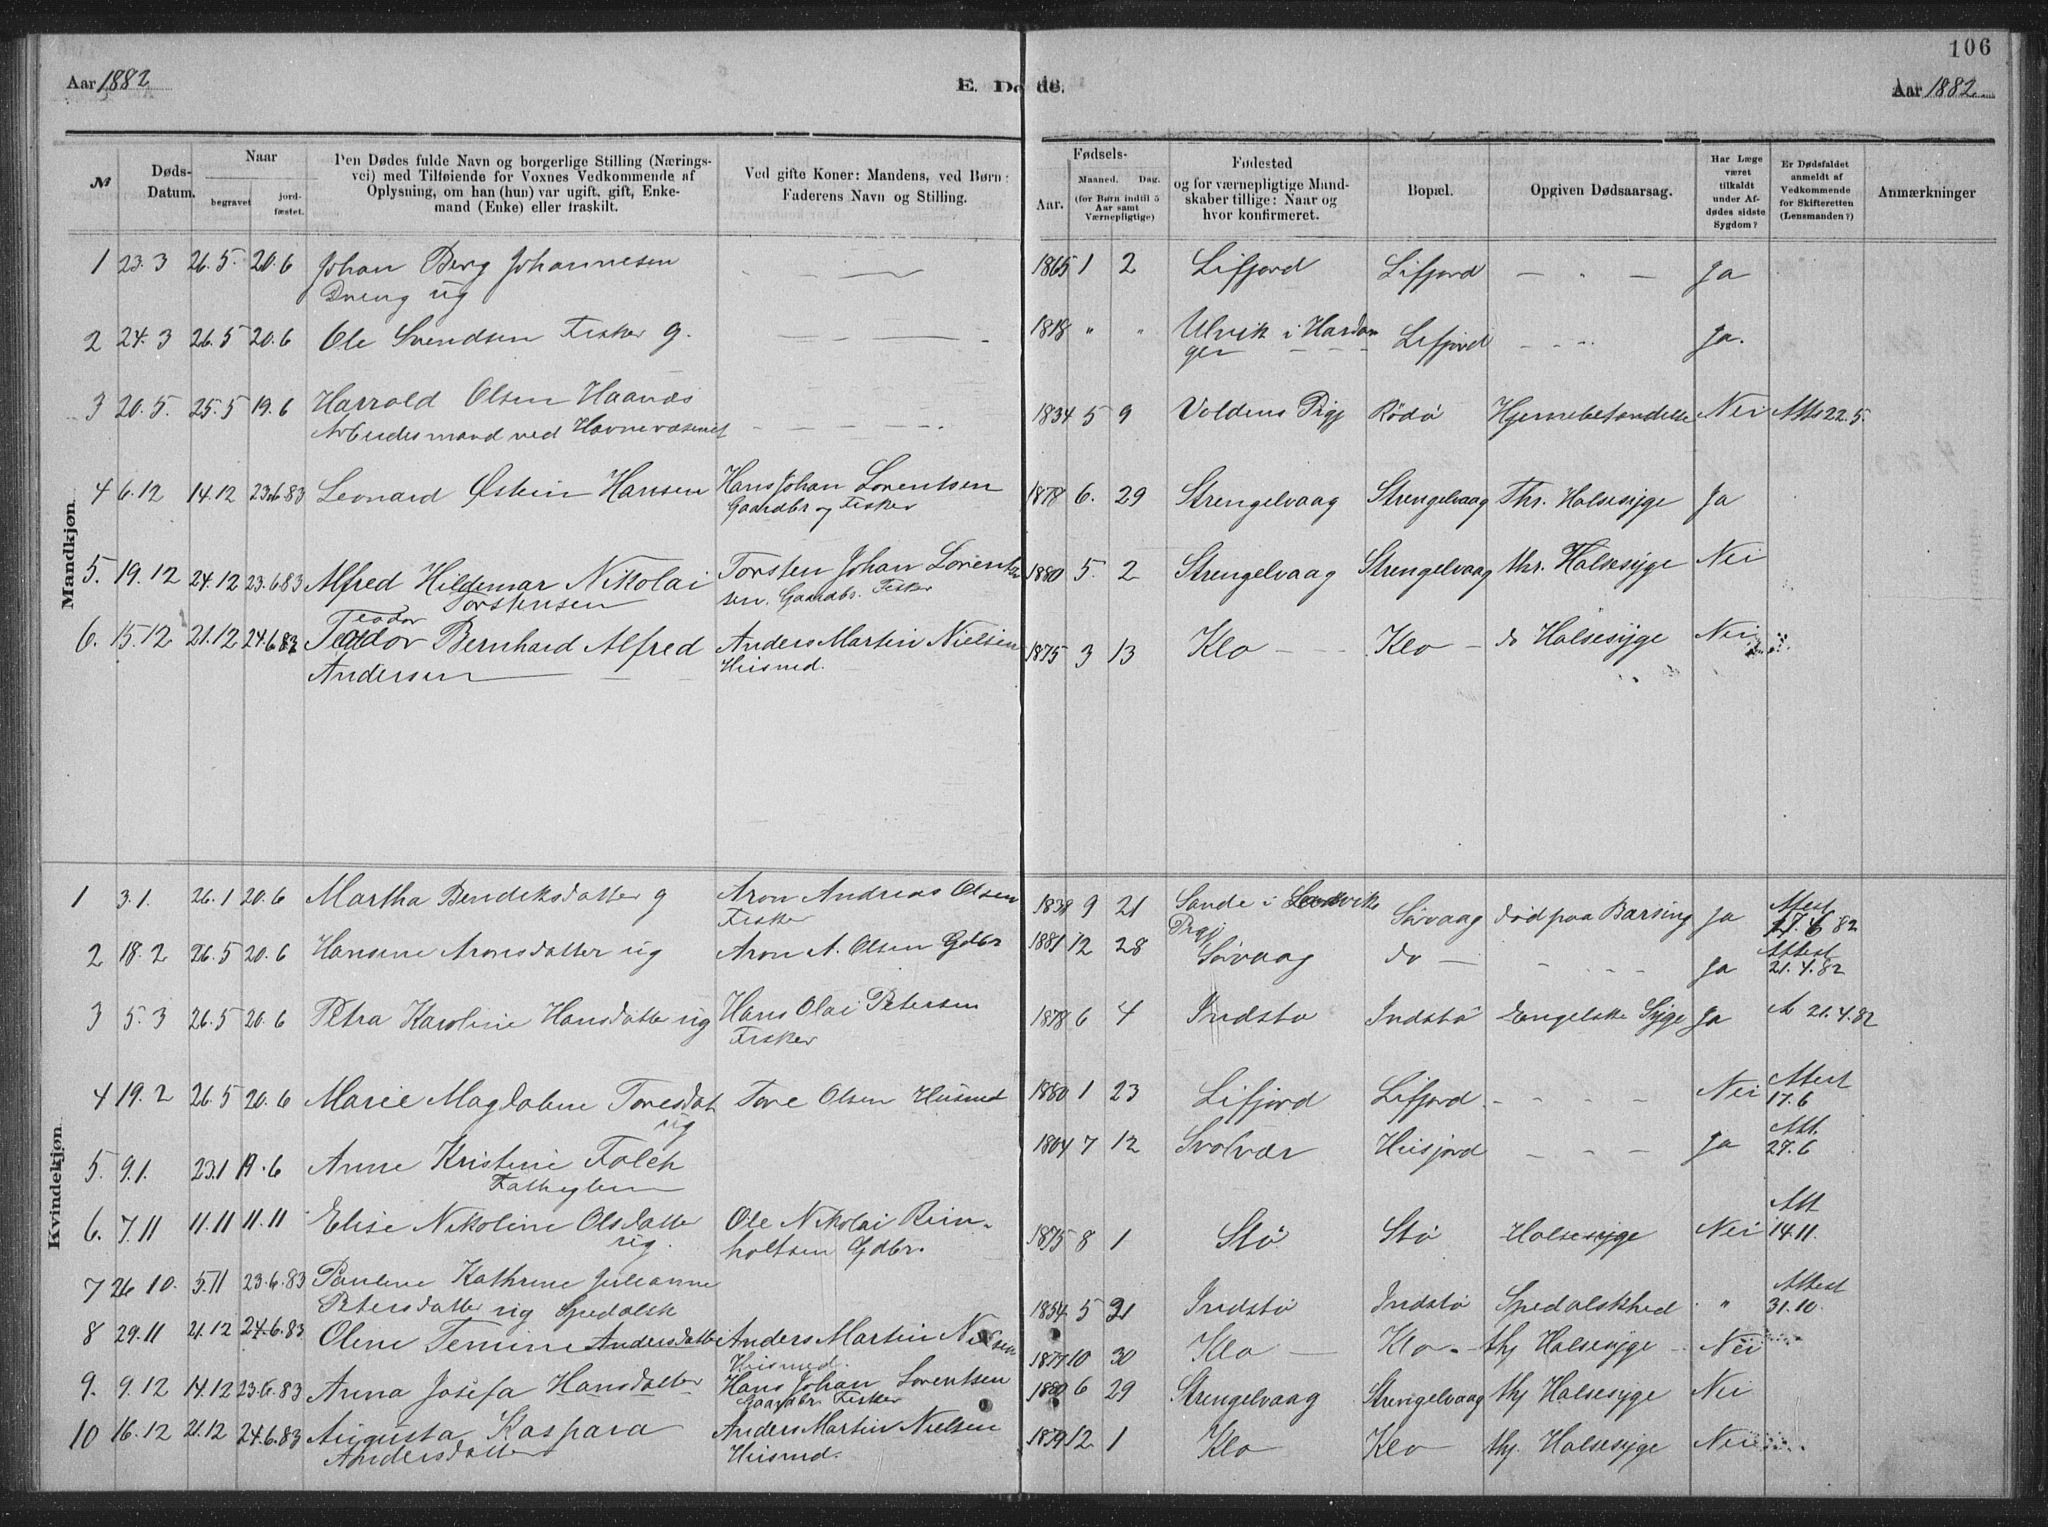 106
Aar 1882
E. Døde.
Aar 1882
№
Døds-Datum.
Naar
begravet
jord-fæstet.
Den Dødes fulde Navn og borgerlige Stilling (Nærings-
vei) med Tilføiende for Voxnes Vedkommende af
Oplysning, om han (hun) var ugift, gift, Enke-
mand (Enke) eller fraskilt.
Ved gifte Koner: Mandens, ved Børn:
Faderens Navn og Stilling.
Fødsels-
Aar.
Maaned. Dag.
(for Børn indtil 5
Aar samt
Værnepligtige)
Fødested
og for værnepligtige Mand-
skaber tillige: Naar og
hvor konfirmeret.
Bopæl.
Opgiven Dødsaarsag.
Har Læge
været
tilkaldt
under Af-
dødes sidste
Sygdom?
Er Dødsfaldet
anmeldt af
Vedkommende
for Skifteretten
(Lensmanden?)
Anmærkninger
Mandkjøn
1 23.3 26.5. 20.6 Johan Berg Johannesen 1865 1 2 Lifjord Lifjord — " — Ja
Dreng ug
2 24.3 26.5 20.6 Ole Svendsen Fisker g. 1818 " " Ulvik i Hardan Lifjord Ja.
ger
3 20.5. 25.5 19.6 Harrold Olsen Haanæs 1834 5 9 Voldens Prgj Rödö Hjernebetændelse Nei Atts 22.5.
Arbeidsmand ved Havnevæsenet
4 6.12 14.12 23.6.83 Leonard Østein Hansen Hans Johan Lorentsen 1878 6. 29 Strengelvaag Strengelvaag Thr. Halsesyge Ja
Gaardbr og Fisker
5. 19.12 24.12 23.6.83 Alfred Hildemar Nikolai Torsten Johan Lorent 1880 5. 2 Strengelvaag Strengelvaag thr. Halsesyge Nei
Torstensen sen. Gaardbr. Fisker
Teodor
6. 15.12 21.12 24.6.83 Teodor Bernhard Alfred Anders Martin Nielsen 1875 3 13 Klo Klo do Halsesyge Nei
Andersen Husmd.
Kvindekjøn
1 3.1. 26.1 20.6 Martha Bendiksdatter g Aron Andreas Olsen 1838 9 21 Sande i Sørvaag død paa Barsing Ja Attest
Fisker Prgj 82
2 18.2 26.5 20.6 Hansine Aronsdatter ug Aron A. Olsen Gdbr 1881 12 28 Sørvaag do — Ja Attest
21.4.82
3 5.3 26.5 20.6 Petra Karoline Hansdatter ug Hans Olai Petersen 1878 6 4 Indstø Indstø Engelske Syge Ja A 21.4.82
Fisker
4 19.2 26.5 20.6 Marie Magdalene Toresdat Tore Olsen Husmd 1880 1 23 Lifjord Lifjord Nei Attest
ug 17.6
5. 9.1. 23.1 19.6 Anne Kristine Falch 1804 7 12 Svolvær Husjord Ja Att.
Fattiglem 27.6
6. 7.11 11.11 11.11 Elise Nikoline Olsdatter Ole Nikolai Rein- 1875 8 1 Stø Stø Halsesyge Nei Att
ug. holtsen Gdbr. 14.11.
7 26.10. 5.11 23.6.83 Pauline Kathrine Julianne 1854 5 31 Indstø Indstø Spedalskhed " Attest
Petersdatter ug Spedalsk 31.10.
8 29.11 21.12 24.6.83 Oline Temine Andersdatter Anders Martin Nielsen 1877 10 30 Klo — Klo thj Halsesyge Nei
Husmd.
9. 9.12 14.12 23.6.83 Anna Josefa Hansdatter Hans Johan Lorentsen 1880 6 29 Strengelvaag Strengelvaag thj Halsesyge Nei
Gaardbr. Fisker
10 16.12 21.12 24.6.83 Augusta Kaspara Anders Martin Nielsen 1879 12 1 Klo Klo thj. Halsesyge Nei
Andersdatter Husmd.